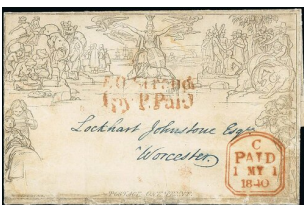 Py P.Paid
Lockhart Johnstone Esqr
Worcester
C
PAID
1 MY 1
1840
POSTAGE